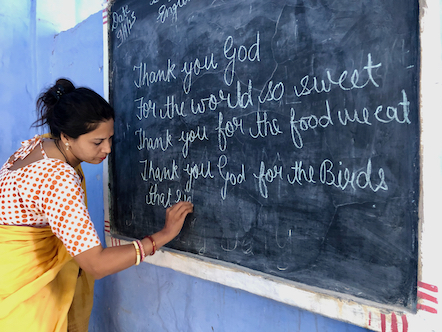 Date
9/1/23
English
Thank you God
For the world so sweet
Thank you for the food we eat
Thank you God for the Birds
that si